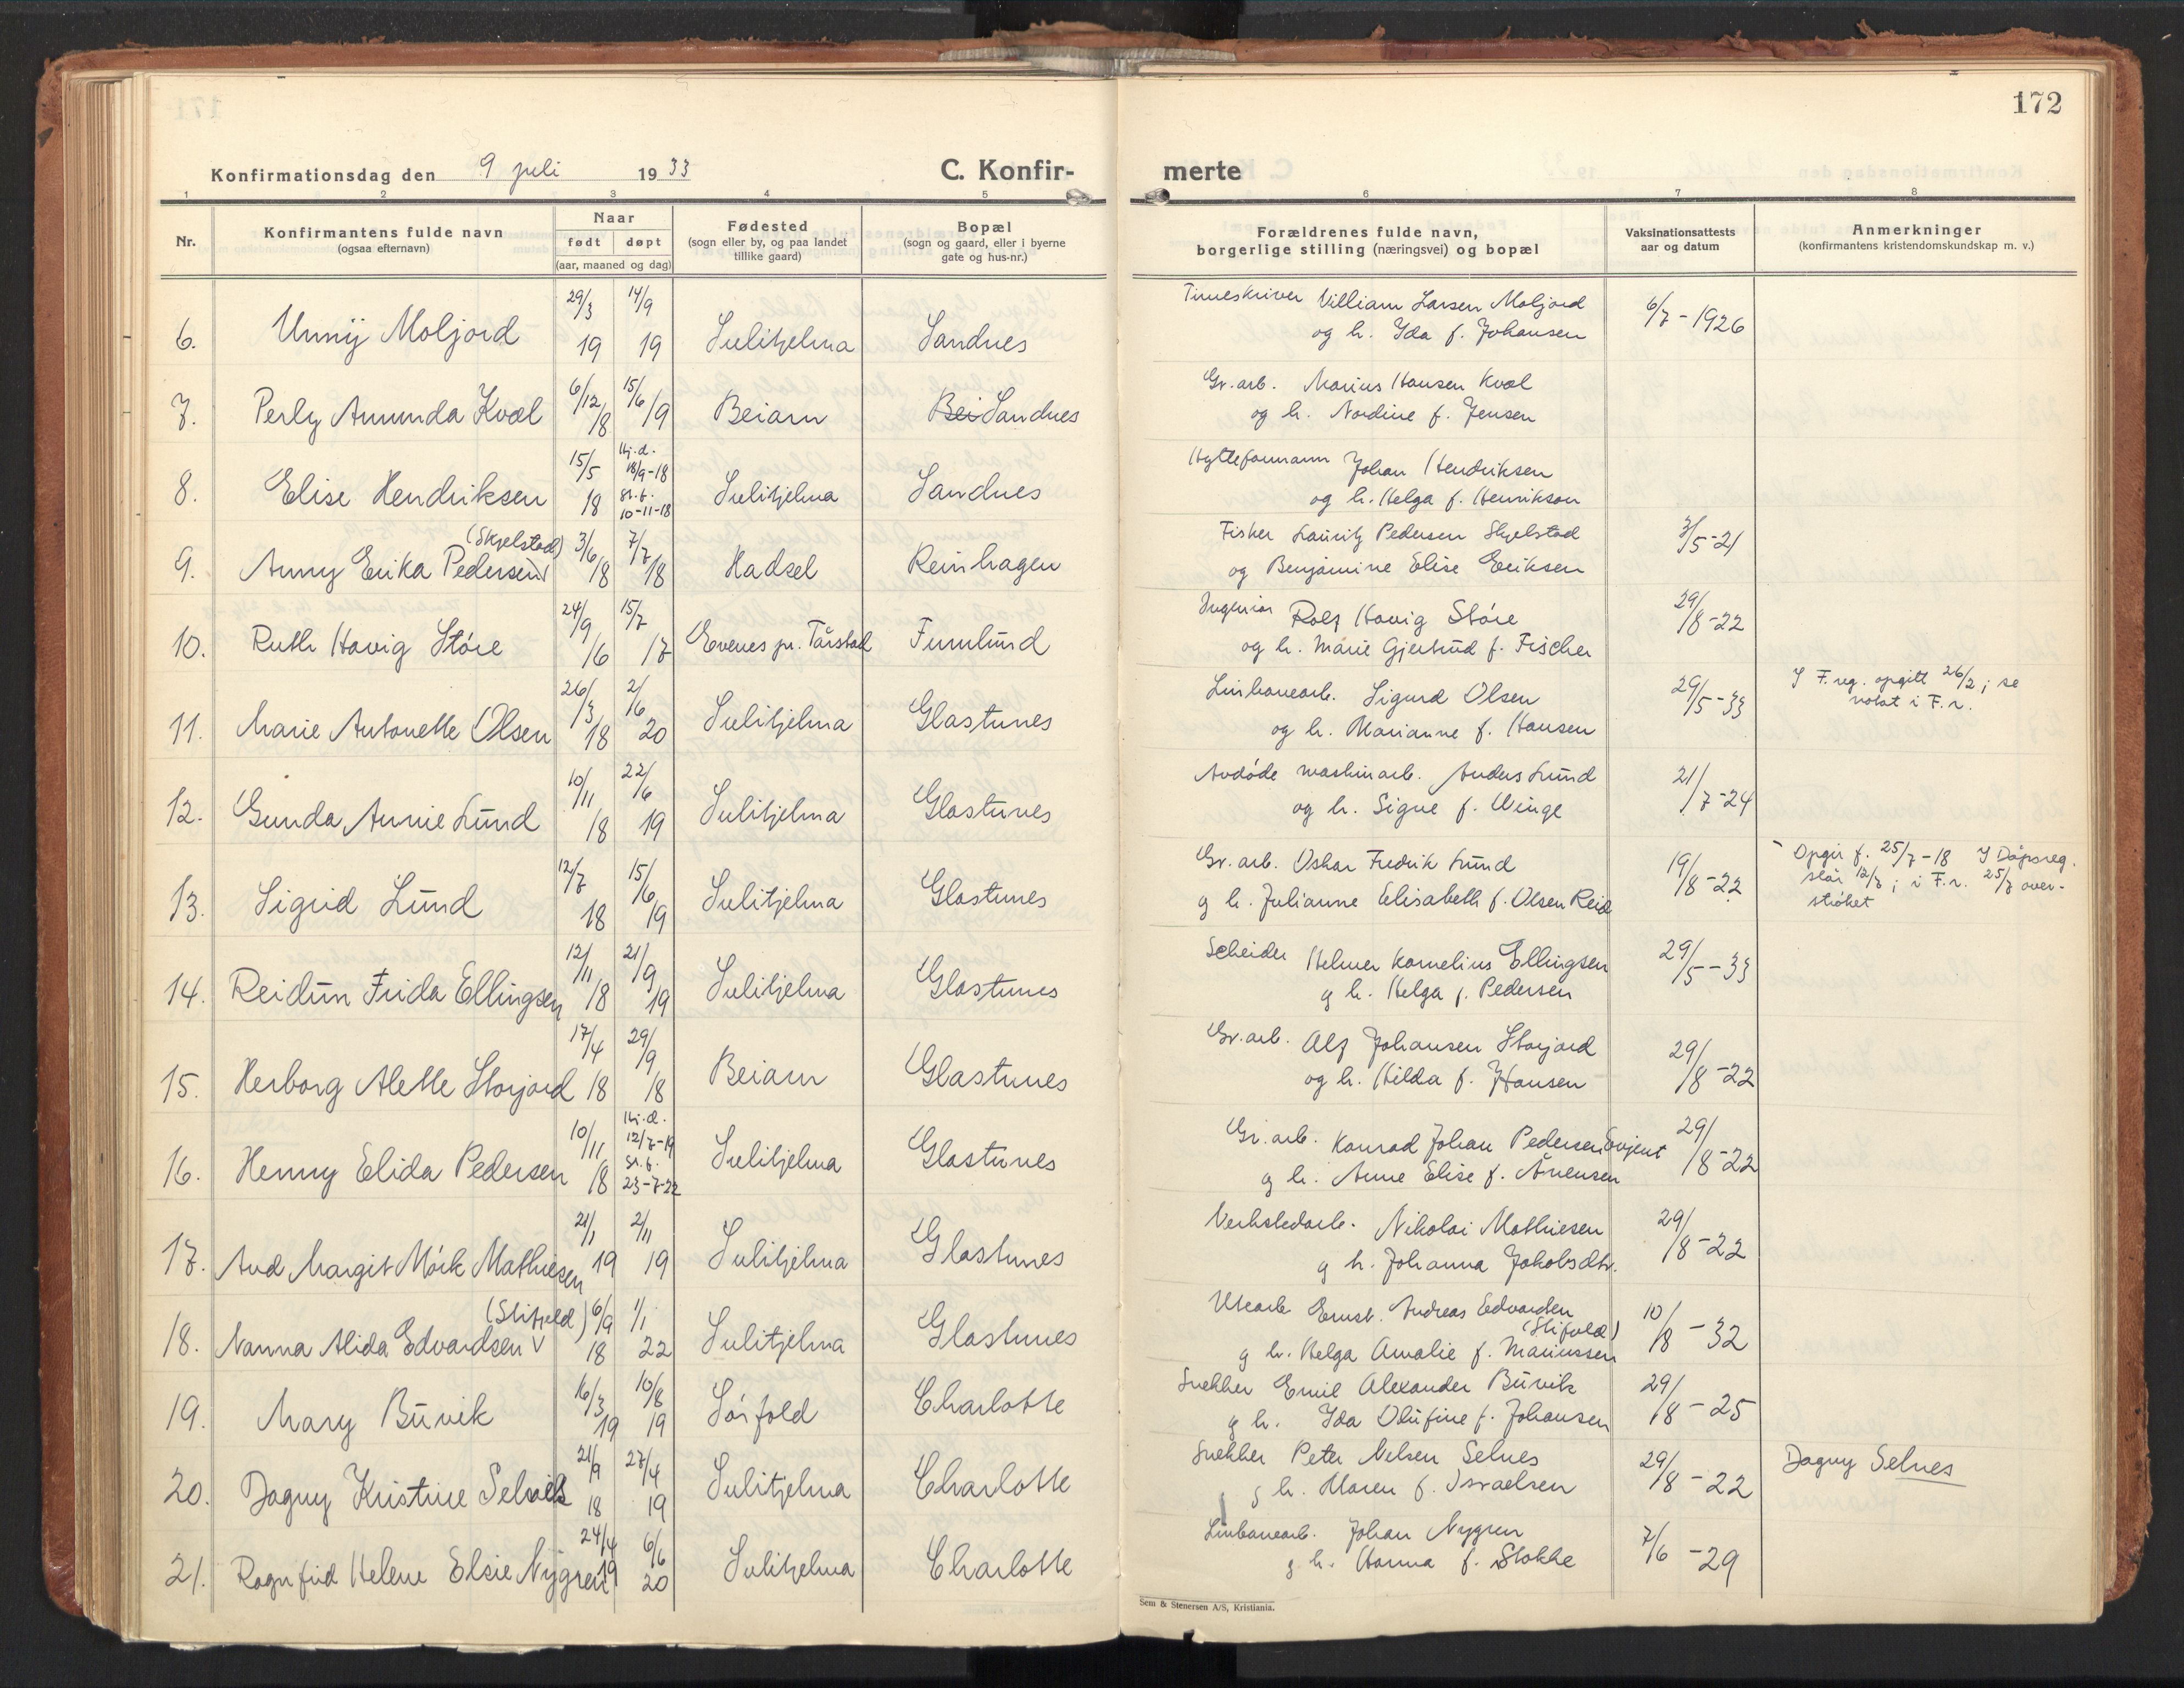 172
Konfirmationsdag den 9 juli 1933 C. Konfir- merte
1 2 3 4 5 6 7 8
Nr. Konfirmantens fulde navn (ogsaa efternavn) Naar født døpt (aar, maaned og dag) Fødested (sogn eller by, og paa landet tillike gaard) Bopæl (sogn og gaard, eller i byerne gate og hus-nr.) Forældrenes fulde navn, borgerlige stilling (næringsvei) og bopæl Vaksinationsattests aar og datum Anmerkninger (konfirmantens kristendomskundskap m. v.)
6. Unny Moljord 29/3 19 14/9 19 Sulitjelma Sandnes Timeskriver Villiam Larsen Moljord 6/7-1926
og h. Ida f. Johansen
7. Perly Amunda Kvæl 6/12 18 15/6 19 Beiarn Bei Sandnes Gr.arb. Marius Hansen Kvæl
og h. Nordine f. Jensen
8. Elise Hendriksen 15/5 18 Hj.d. 18/9-18 st.f. 10-11-18 Sulitjelma Sandnes Hytteformann Johan Hendriksen
og h. Helga f. Henrikson
9. Anny Erika Pedersen (Skjelstad) 3/6 18 7/7 18 Hadsel Reinhagen Fisker Lauritz Pedersen Skjelstad 3/5-21
og Benjamine Elise Eriksen
10. Ruth Hovig Støre 24/9 16 15/7 17 Evenes pr. Tårstad Furulund Ingeniør Rolf Hovig Støre 29/8-22
og h. Marie Gjertrud f. Fischer
11. Marie Antonette Olsen 26/3 18 2/6 20 Sulitjelma Glastunes Linbanearb. Sigurd Olsen 29/5-33 I F.reg. opgitt 26/2; se
og h. Marianne f. Hansen notat i F.r.
12. Gunda Annie Lund 10/11 18 22/6 19 Sulitjelma Glastunes Avdøde maskinarb. Anders Lund 21/7-24
og h. Signe f. Winge
13. Sigrid Lund 12/7 18 15/6 19 Sulitjelma Glastunes Gr.arb. Oskar Fredrik Lund 19/8-22 Opgir f. 25/7-18 I Døpsreg.
g h. Julianne Elisabeth f. Olsen Reid står 12/7; i F.r. 25/7 over-
strøket
14. Reidun Frida Ellingsen 12/11 18 21/9 19 Sulitjelma Glastunes Scheider Helmer Kornelius Ellingsen 29/5-33
g h. Helga f. Pedersen
15. Herborg Alette Storjord 17/4 18 29/9 18 Beiarn Glastunes Gr.arb. Alf Johansen Storjord 29/8-22
og h. Hilda f. Hansen
16. Henny Elida Pedersen 10/11 18 Hj.d. 12/7-19 st.f. 23-7-22 Sulitjelma Glastunes Gr.arb. Konrad Johan Pedersen Evjent 29/8-22
g h. Anne Elise f. Arnensen
17. Aud Margit Mörk Mathiesen 21/1 19 2/11 19 Sulitjelma Glastunes Verkstedarb. Nikolai Mathiesen 29/8-22
g h. Johanna Jakobsdtr.
18. Nanna Alida Edvardsen (Slifjeld) 6/9 18 1/1 22 Sulitjelma Glastunes Utearb Ernst Andreas Edvardsen 10/8-32
g h. Helga Amalie f. Mariussen
19. Mary Buvik 16/3 19 10/8 19 Sørfold Charlotte Snekker Emil Alexander Buvik 29/8-25
g h. Ida Olufine f. Johansen
20. Dagny Kristine Selnes 21/9 18 27/4 19 Sulitjelma Charlotte Snekker Peter Nelsen Selnes 29/8-22 Dagny Selnes
g h. Maren f. Israelsen
21. Ragnfrid Helene Elsie Nygren 24/4 19 6/6 20 Sulitjelma Charlotte Linbanearb. Johan Nygren 7/6-29
g h. Hanna f. Stokke
Sem & Stenersen A/S, Kristiania.